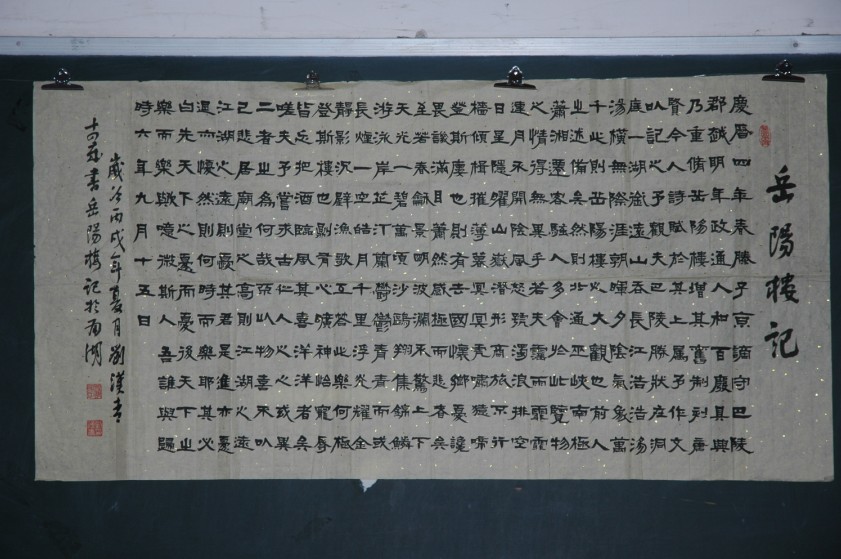 岳陽樓記
慶曆四年春滕子京謫守巴陵
郡越明年政通人和百廢具興
乃重修岳陽樓增其舊制刻唐
賢今人詩賦於其上屬予作文
以記之予觀夫巴陵勝狀在洞
庭一湖銜遠山吞長江浩浩湯
湯橫無際涯朝暉夕陰氣象萬
千此則岳陽樓之大觀也前人
之述備矣然則北通巫峽南極
蕭湘遷客騷人多會於此覽物
之情得無異乎若夫霪雨霏霏
連月不開陰風怒號濁浪排空
日星隱曜山嶽潛形商旅不行
檣傾楫摧薄暮冥冥虎嘯猿啼
登斯樓也則有去國懷鄉憂讒
畏譏滿目蕭然感極而悲者矣
至若春和景明波瀾不驚上下
天光一碧萬頃沙鷗翔集錦鱗
游泳岸芷汀蘭鬱鬱青青而或
長煙一空皓月千里浮光耀金
靜影沉璧漁歌互答此樂何極
登斯樓也則有心曠神怡寵辱
皆忘把酒臨風其喜洋洋者矣
嗟夫予嘗求古仁人之心或異
二者之為何哉不以物喜不以
己悲居廟堂之高則
江湖之遠則憂其君是進亦憂
退亦憂然則何時而樂耶其必
曰先天下之憂而憂後天下之
樂而樂歟噫微斯人吾誰與歸
時六年九月十五日
歲次丙戌年夏月劉漢青
十四歲書岳陽樓記於南湖